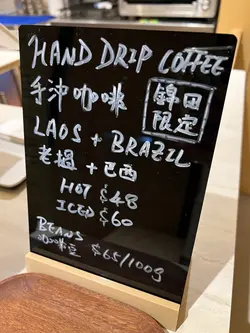 HAND DRIP COFFEE
手沖咖啡
錦田
限定
LAOS + BRAZIL
老撾 + 巴西
HOT $48
ICED $60
BEANS
咖啡豆 $65/100g